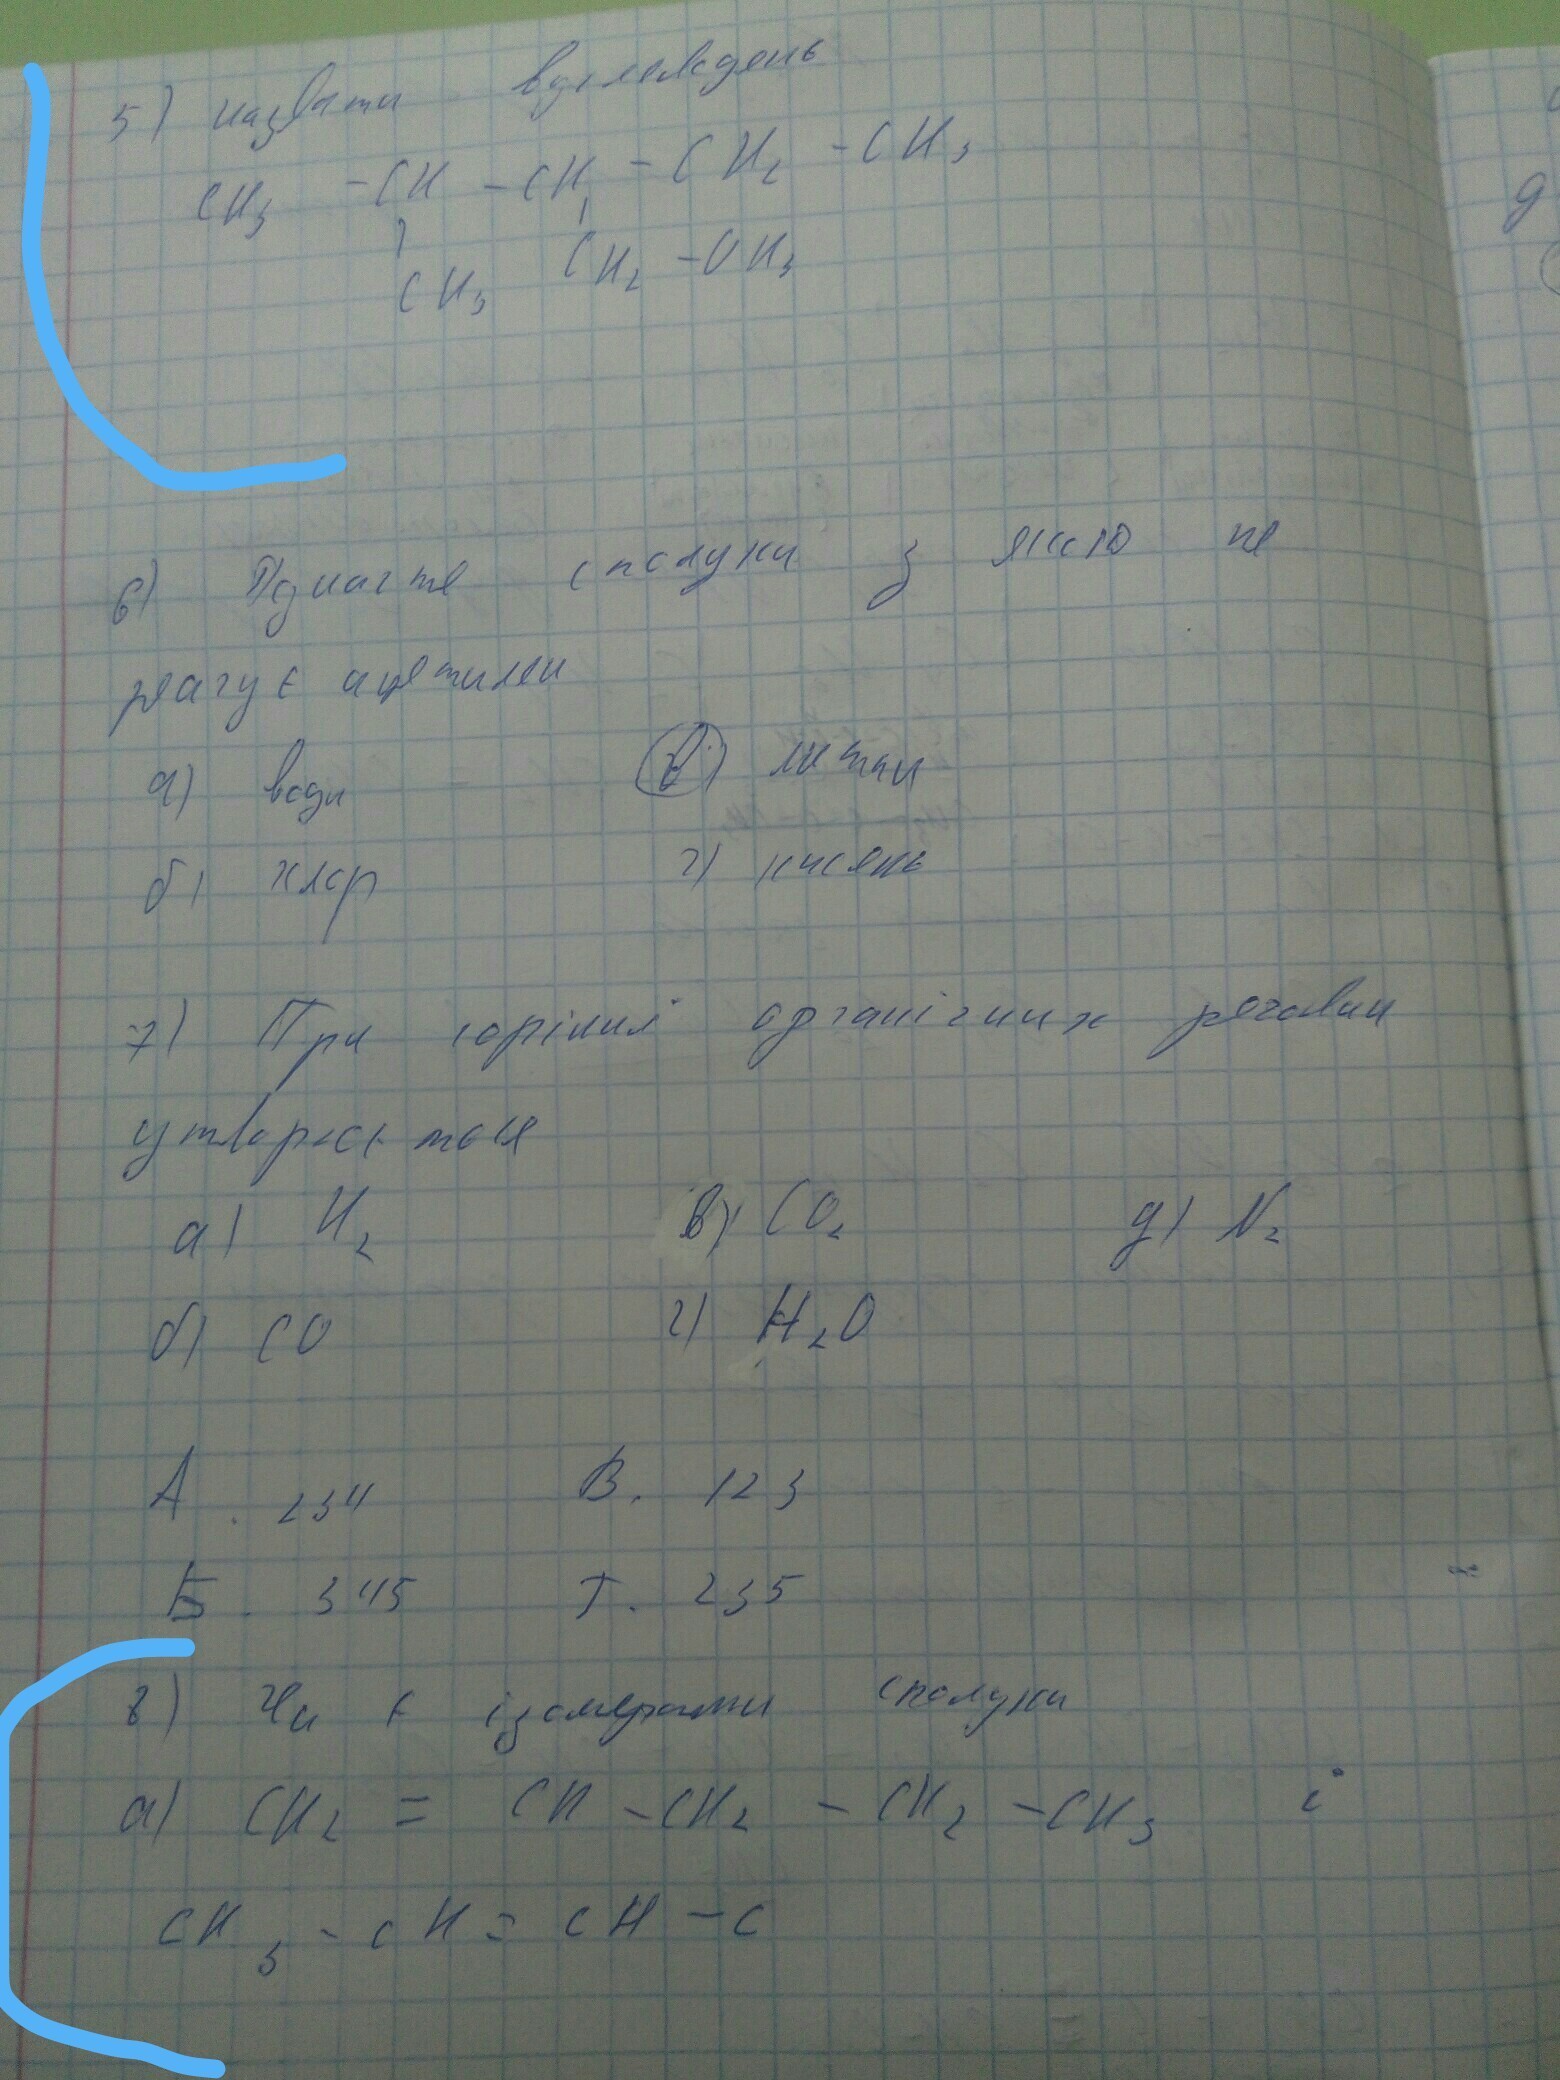 5) назвати вуглеводень
CH3 - CH - CH - CH2 - CH3
CH3 CH2 - CH3
6) Познач­те сполуки з якою не
реагує ацетилен
а) вода в) метан
б) хлор г) кисень
7) При горінні органічних речовин
утворюється
а) H2 в) CO2 д) N2
б) CO г) H2O
А. 234 В. 123
Б. 345 Г. 235
8) Чи є ізомерами сполуки
а) CH2 = CH - CH2 - CH2 - CH3 і
CH3 - CH = CH - C